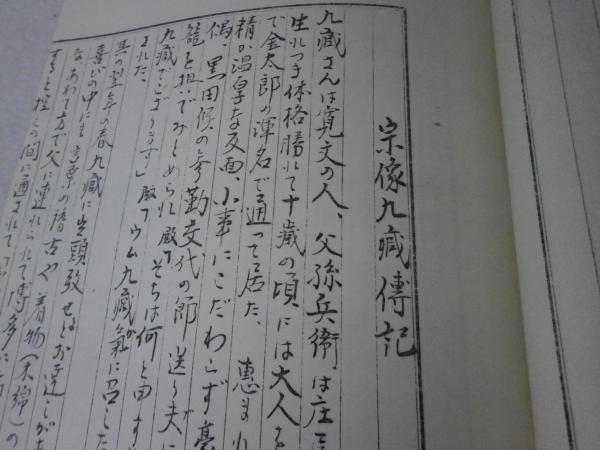 宗像九藏傳記
九藏さんは寛文の人、父孫兵衛は庄
生れつき体格勝れて十歳の頃には大人
で金太郎の渾名で通って居た、恵まれ
精が温厚な反面、小事にこだわらず豪
偶、黒田候の参勤交代の節送り夫に
籠を担いでみとめられ殿下そちは何と由す
九藏でござります」殿下ウム九藏が氣に召した
された、
其の翌年の春九藏に出頭致せとお達しが
喜びの中にも言葉の稽古や着物(木綿)の
な、あわて方で父に連れられて博多に
すると控えの間に通されて